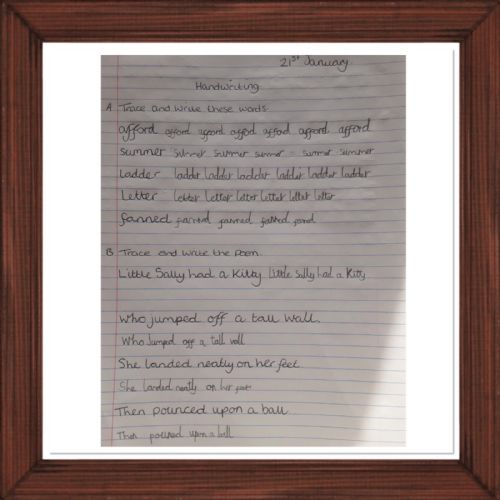 21st January
Handwriting
A Trace and write these words.
afford afford afford afford afford afford afford
summer summer summer summer summer summer
Ladder ladder ladder ladder ladder ladder ladder
Letter letter letter letter letter letter letter
fanned fanned fanned fanned
B Trace and write the poem.
Little Sally had a Kitty Little Sally had a Kitty
Who jumped off a tall wall.
Who Jumped off a tall
She landed neatly on her feet
She landed neatly on her feet
Then pounced upon a ball
Then upon a ball